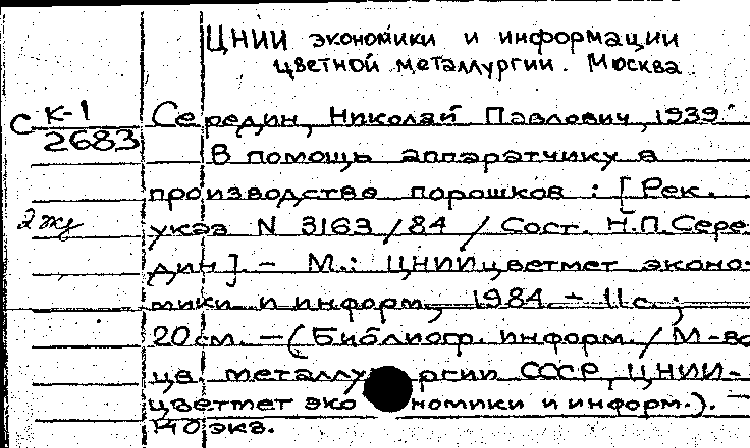 ЦНИИ экономики и информации
цветной металлургии. Москва
С К-1
2683
Середин, Николай Павлович, 1939
В помощь аппаратчику в
производстве порошков : [Рек.
2 экз
указ N 3163/84 / Сост. Н.П.Сере-
дин]. - М.: ЦНИИцветмет эконо-
мики и информ, 1984. - 11с. ;
20 см. - (Библиогр. информ. / М-во
цв металлургии СССР, ЦНИИ-
цветмет экономики и информ.). -
140 экз.